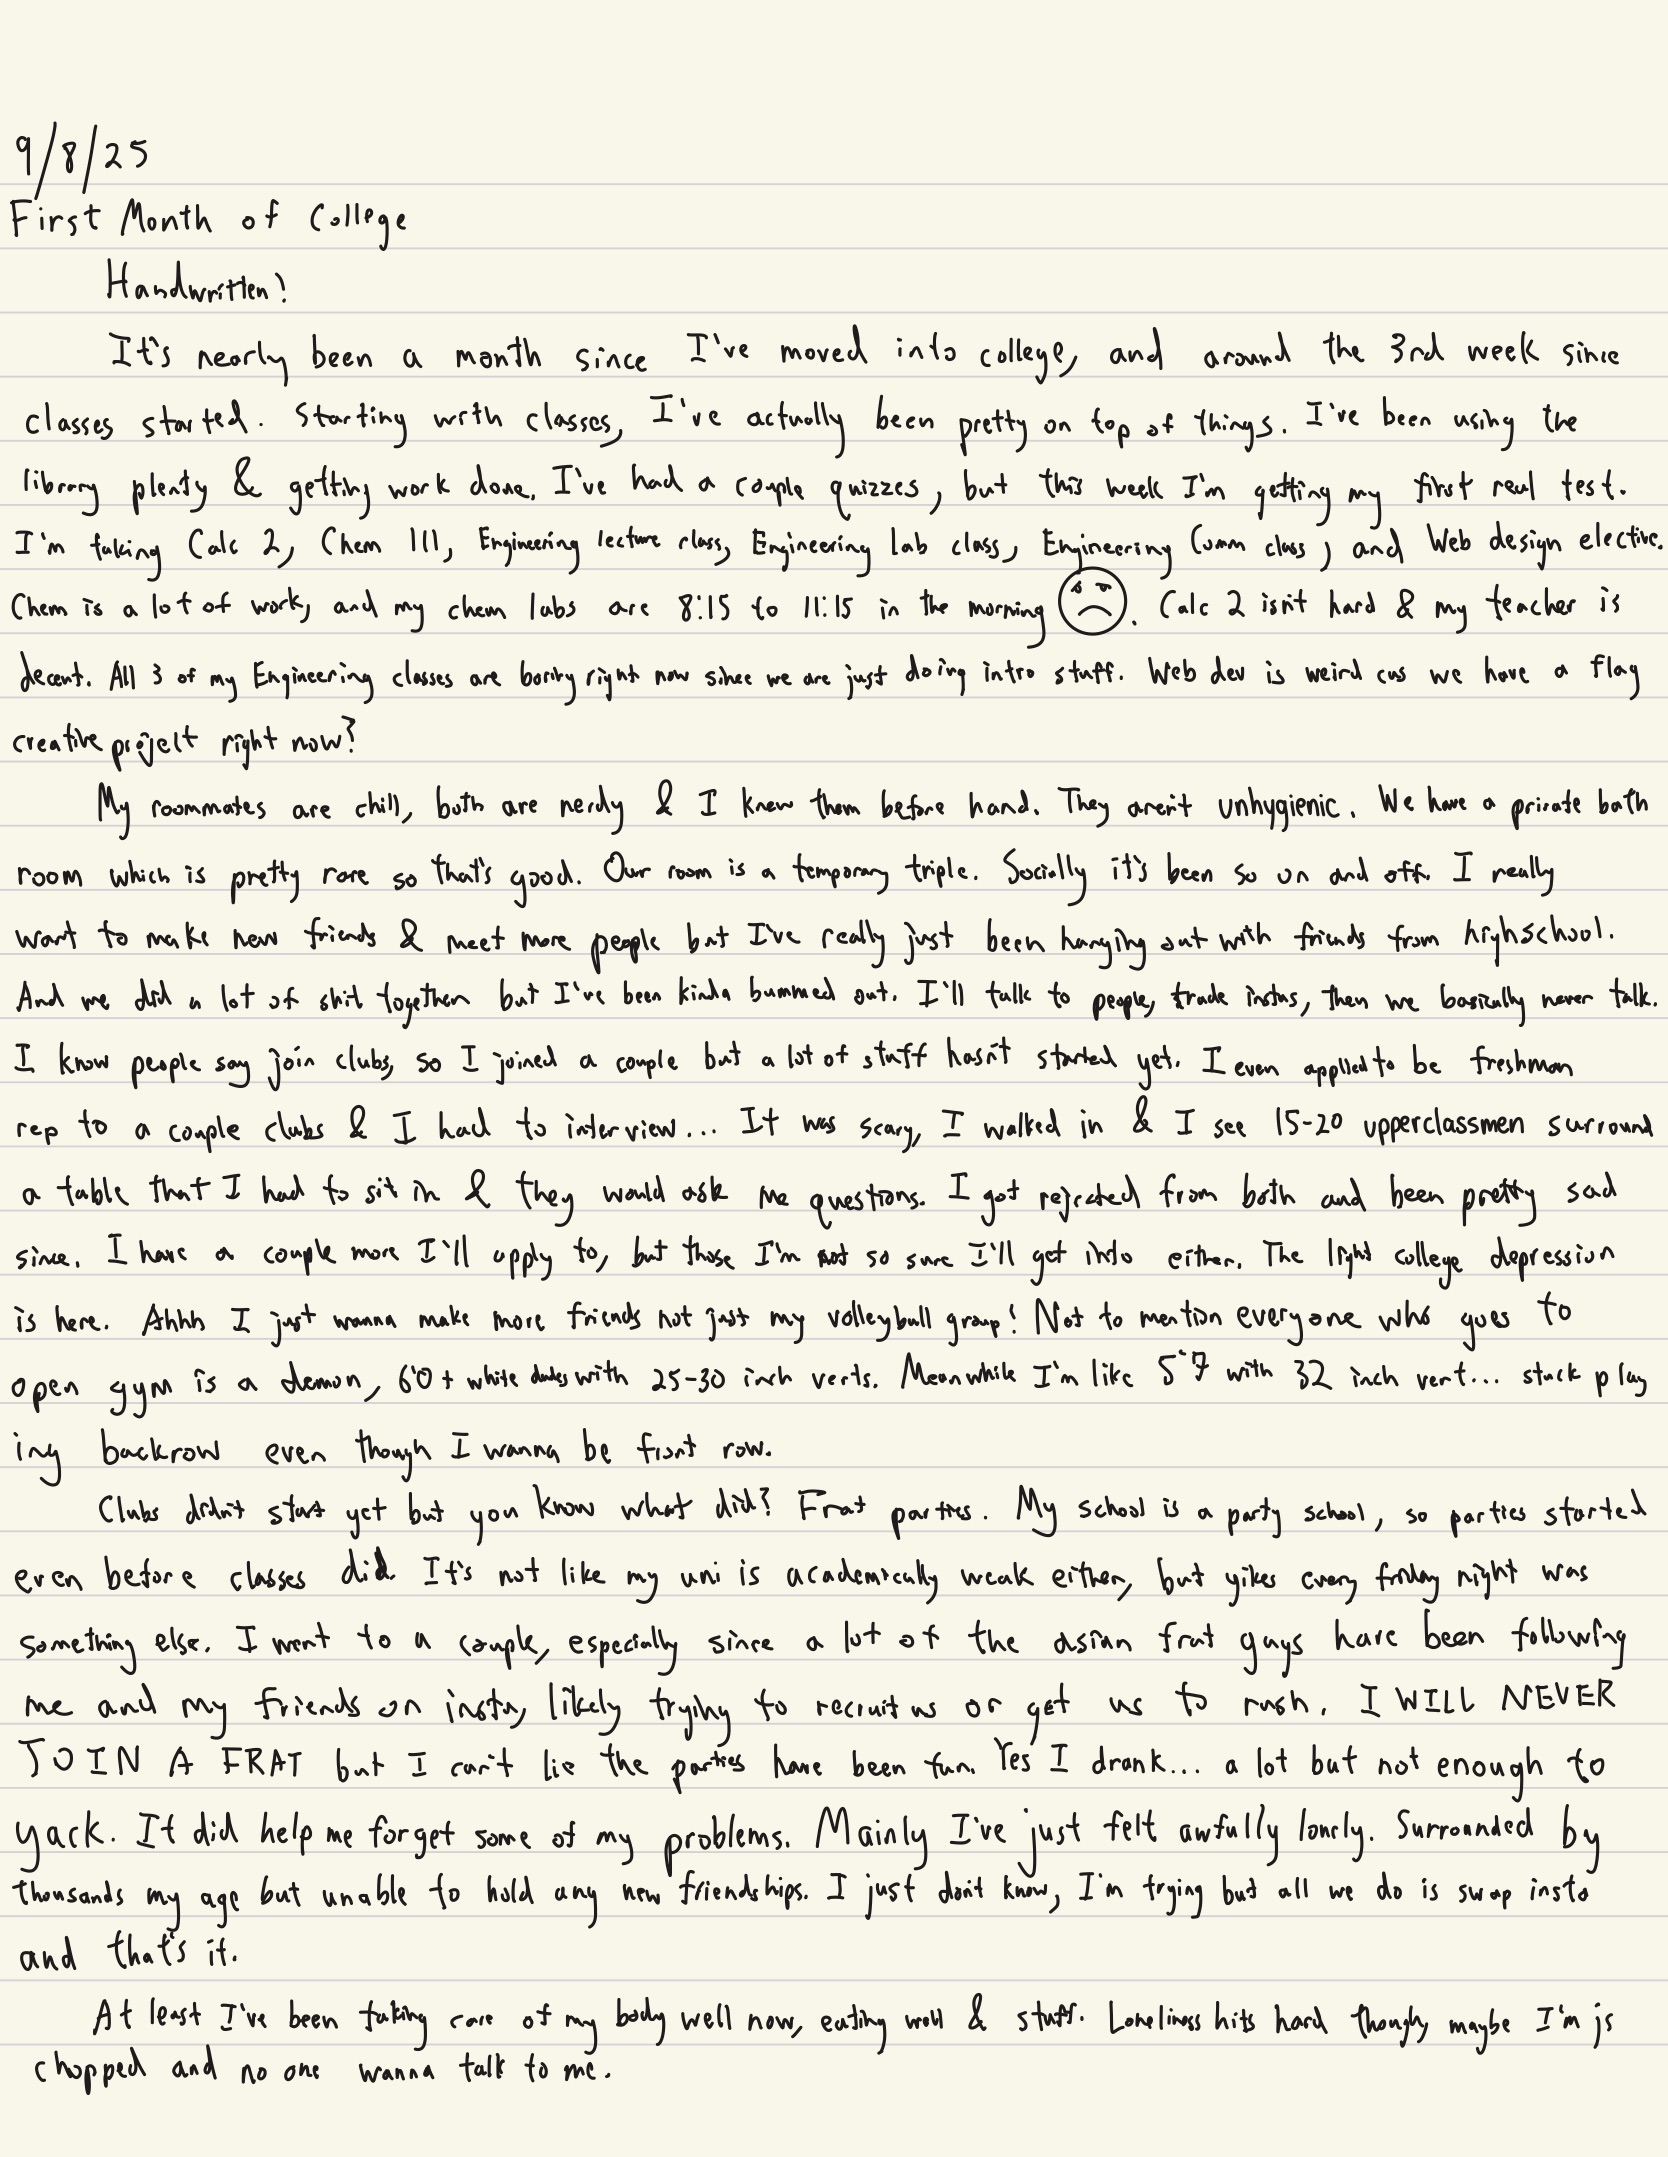 9/8/25
First Month of College
Handwritten!
It's nearly been a month since I've moved into college, and around the 3rd week since
classes started. Starting with classes, I've actually been pretty on top of things. I've been using the
library plenty & getting work done. I've had a couple quizzes, but this week I'm getting my first real test.
I'm taking Calc 2, Chem 111, Engineering lecture class, Engineering lab class, Engineering Comm class, and Web design elective.
Chem is a lot of work, and my chem labs are 8:15 to 11:15 in the morning. Calc 2 isn't hard & my teacher is
decent. All 3 of my Engineering classes are boring right now since we are just doing intro stuff. Web dev is weird cus we have a flag
creative project right now?
My roommates are chill, both are nerdy & I knew them before hand. They aren't unhygienic. We have a private bath
room which is pretty rare so that's good. Our room is a temporary triple. Socially it's been so on and off. I really
want to make new friends & meet more people but I've really just been hanging out with friends from highschool.
And we did a lot of shit together but I've been kinda bummed out. I'll talk to people, trade instas, then we basically never talk.
I know people say join clubs, so I joined a couple but a lot of stuff hasn't started yet. I even applied to be freshman
rep to a couple clubs & I had to interview... It was scary, I walked in & I see 15-20 upperclassmen surround
a table that I had to sit in & they would ask me questions. I got rejected from both and been pretty sad
since. I have a couple more I'll apply to, but those I'm not so sure I'll get into either. The light college depression
is here. Ahhh I just wanna make more friends not just my volleyball group! Not to mention everyone who goes to
open gym is a demon, 6'0+ white dudes with 25-30 inch verts. Meanwhile I'm like 5'7 with 32 inch vert... stuck play
ing backrow even though I wanna be front row.
Clubs didn't start yet but you know what did? Frat parties. My school is a party school, so parties started
even before classes did. It's not like my uni is academically weak either, but yikes every friday night was
something else. I went to a couple, especially since a lot of the asian frat guys have been following
me and my friends on insta, likely trying to recruit us or get us to rush. I WILL NEVER
JOIN A FRAT but I can't lie the parties have been fun. Yes I drank... a lot but not enough to
yack. It did help me forget some of my problems. Mainly I've just felt awfully lonely. Surrounded by
thousands my age but unable to hold any new friendships. I just don't know, I'm trying but all we do is swap insta
and that's it.
At least I've been taking care of my body well now, eating well & stuff. Loneliness hits hard though, maybe I'm js
chopped and no one wanna talk to me.